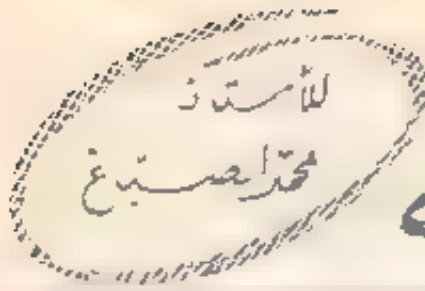 للأستاذ
محمد الصباغ